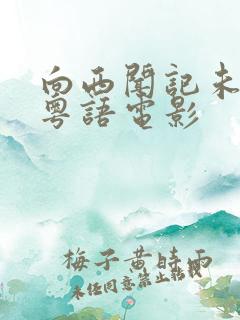 向西聞記未
粵語電影
梅子黄時雨
未经同意禁止转载